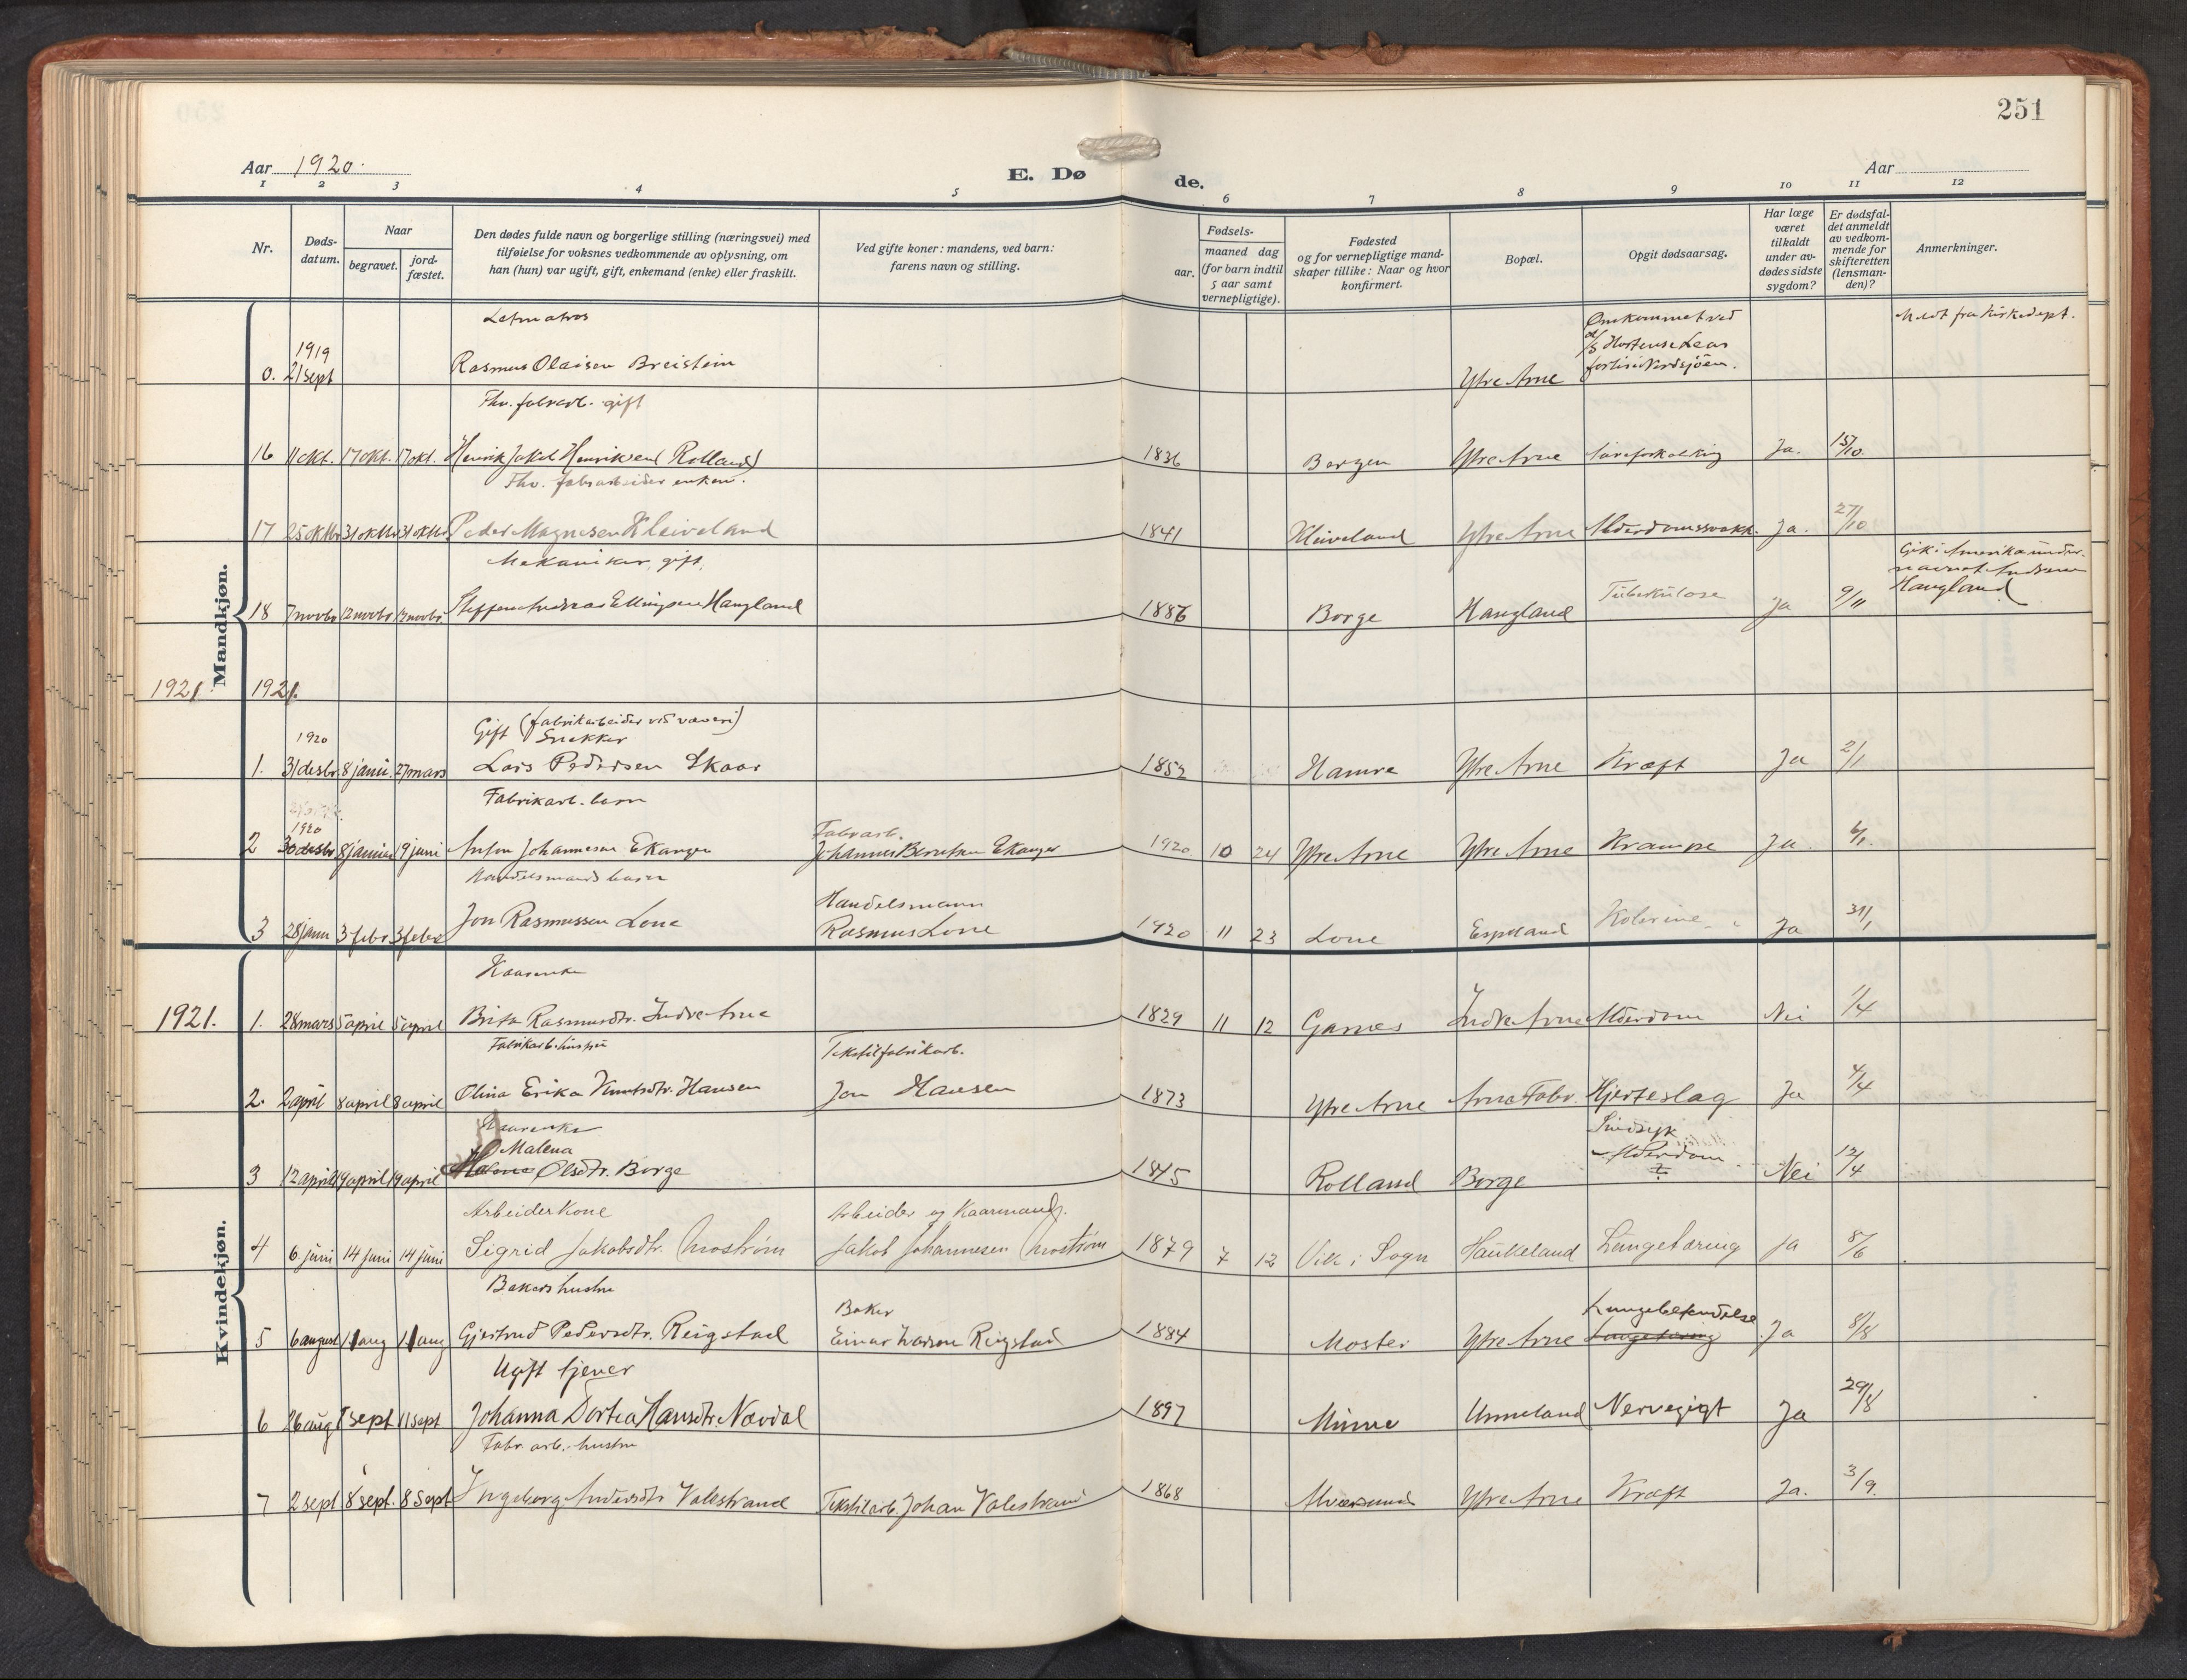 251
Aar 1920.
E. Døde.
Aar
1 2 3 4 5 6 7 8 9 10 11 12
Nr.
Døds-
datum.
Naar
begravet.
jord-
fæstet.
Den dødes fulde navn og borgerlige stilling (næringsvei) med
tilføielse for voksnes vedkommende av oplysning, om
han (hun) var ugift, gift, enkemand (enke) eller fraskilt.
Ved gifte koner: mandens, ved barn:
farens navn og stilling.
Fødsels-
aar.
maaned dag
(for barn indtil
5 aar samt
vernepligtige).
Fødested
og for vernepligtige mand-
skaper tillike: Naar og hvor
konfirmert.
Bopæl.
Opgit dødsaarsag.
Har læge
været
tilkaldt
under av-
dødes sidste
sygdom?
Er dødsfal-
det anmeldt
av vedkom-
mende for
skifteretten
(lensman-
den)?
Anmerkninger.
Mandkjøn.
Letmatros
0. 1919 21 sept Rasmus Olaisen Breistein Ytre Arne
Omkommet ved
d/s Hortense Lea's
forlis i Nordsjöen.
Meldt fra Kirkedept.
Fhv. fabrarb. gift
16 11 okt. 17 okt. 17 okt. Henrik Jakob Henriksen (Rolland) 1836 Bergen Ytre Arne Aareforkalkning Ja. 15/10.
Fhv. fabrarbeider enkem.
17 25 oktbr 31 oktbr 31 oktbr Peder Magnesen Kleiveland 1841 Kleiveland Ytre Arne Alderdomssvakh. Ja. 27/10
Mekaniker, gift.
18 7 novbr 12 novbr 12 novbr. Steffen Andreas Ellingsen Haugland 1886 Borge Haugland Tuberkulose Ja 9/11
Gik i Amerika under
navnet Andrew
Haugland
1921. 1921.
Gift (fabrikarbeider ved væveri)
Snekker
1. 1920 31 desbr. 8 janu. 27 mars Lars Pedersen Skaar 1852 Hamre Ytre Arne Kræft Ja 2/1
Fabrikarb. barn
2 1920 30 desbr 8 januar 9 juni Anton Johannesen Ekanger Fabrarb. Johannes Berntsen Ekanger 1920 10 24 Ytre Arne Ytre Arne Krampe Ja. 6/1.
Handelsmands barn
3 28 janu 3 febr 3 febr Jon Rasmussen Lone Handelsmann Rasmus Lone 1920 11 23 Lone Espeland Kolerine Ja 31/1
Kvindekjøn.
Kaarenke
1921. 1. 28 mars 5 april 5 april Brita Rasmusdtr. Indre Arne 1829 11 12 Garnes Indre Arne Alderdom Nei 1/4
Fabrikarb. hustru
2. 2 april 8 april 8 april Olina Erika Knutsdtr. Hansen Tekstilfabrikarb. Jon Hansen 1873 Ytre Arne Arne Fabr. Hjerteslag Ja 4/4
Kaarenke
Malena
3 12 april 19 april 19 april Olsdtr. Borge 1845 Rolland Borge Sindsyk Alderdom ? Nei 12/4
Arbeiderkone
4 6 juni 14 juni 14 juni Sigrid Jakobsdtr. Moström Arbeider og Kaarmand. Jakob Johannesen Moström 1879 7 12 Vik i Sogn Haukeland Lungetæring Ja 8/6
Bakers hustru
5 6 august 11 aug 11 aug Gjertrud Pedersdtr. Reigstad Baker Einar Larsen Reigstad 1884 Moster Ytre Arne Lungebetendelse Lungetæring Ja 8/8
Ugift tjener
6 26 aug 1 sept 11 sept Johanna Dortea Hansdtr. Navdal 1897 Minne Unneland Nervegigt Ja 29/8
Fabr. arb. hustru
7 2 sept 8 sept. 8 sept Ingeborg Andersdtr Valestrand Tekstilarb. Johan Valestrand 1868 Alversund Ytre Arne Kræft Ja. 3/9.